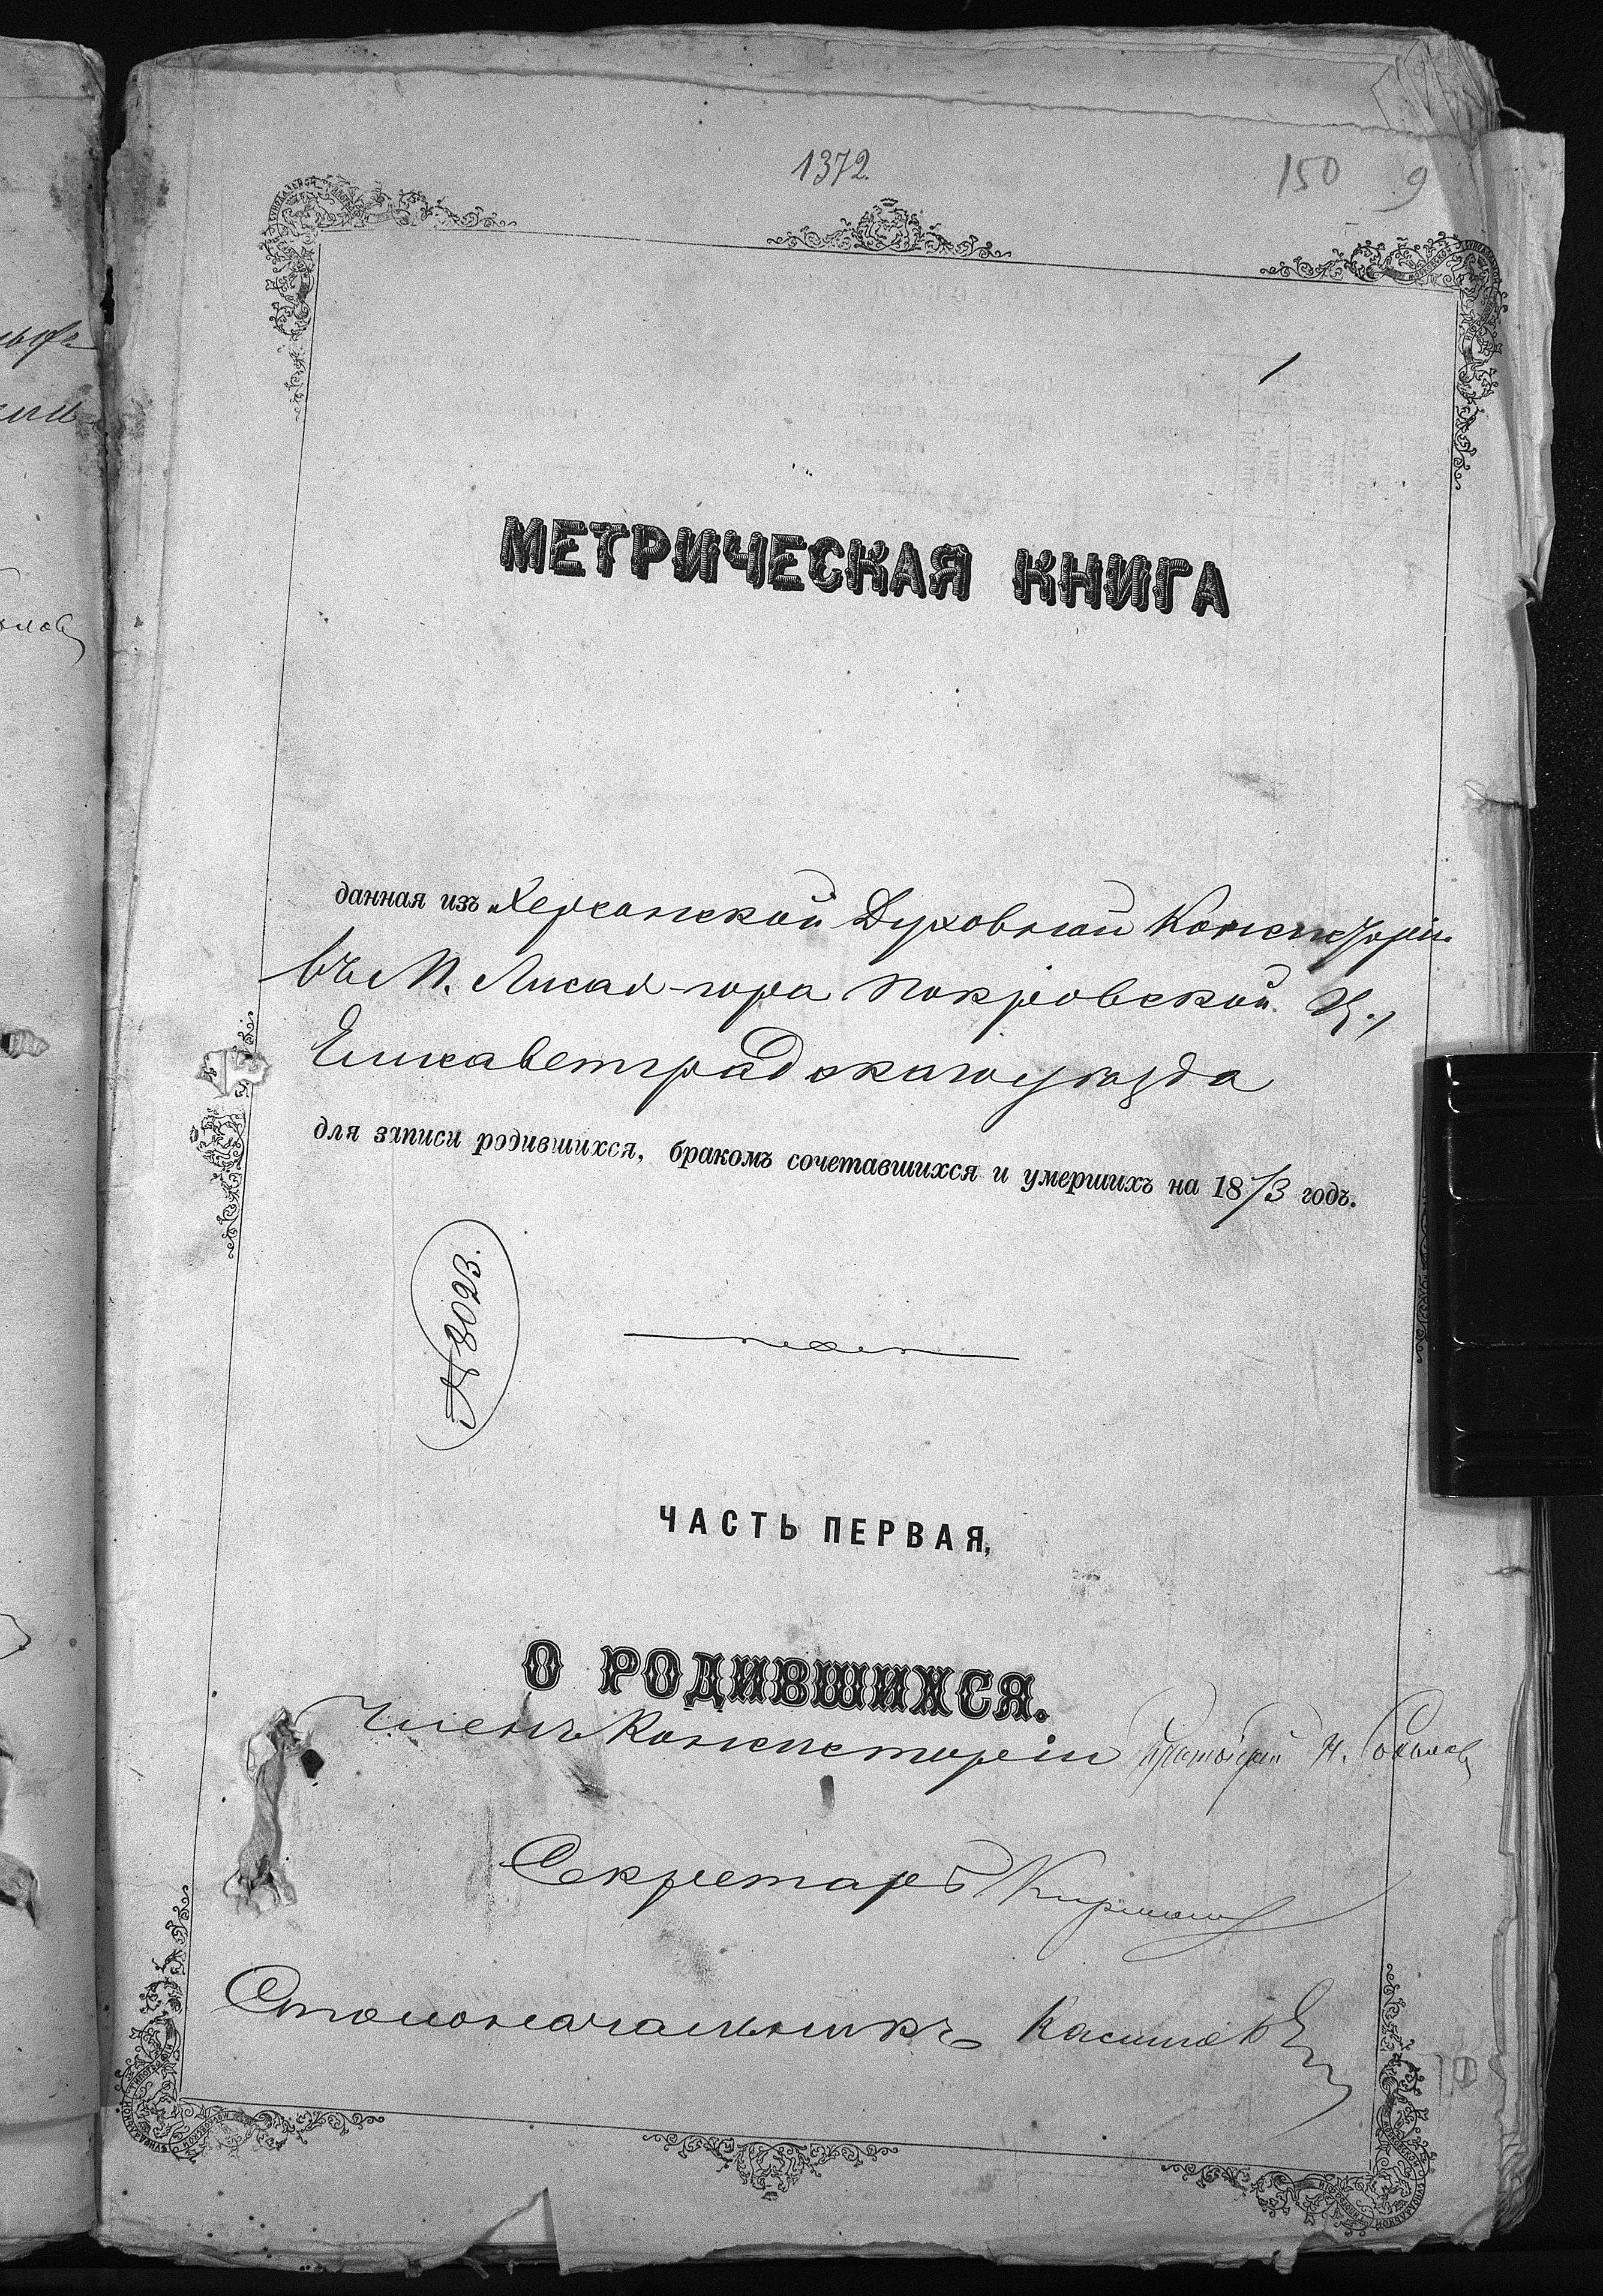 1372.
150 9
1
МЕТРИЧЕСКАЯ КНИГА
данная изъ Херсонской Духовной Консисторіи
въ М. Лисая-гора Покровской Ц.,
Елисаветградскаго уѣзда
для записи родившихся, бракомъ сочетавшихся и умершихъ на 1873 годъ.
№ 3023.
ЧАСТЬ ПЕРВАЯ,
О РОДИВШИХСЯ.
Членъ Консисторіи Протоіерей Н.
Секретарь
Столоначальникъ